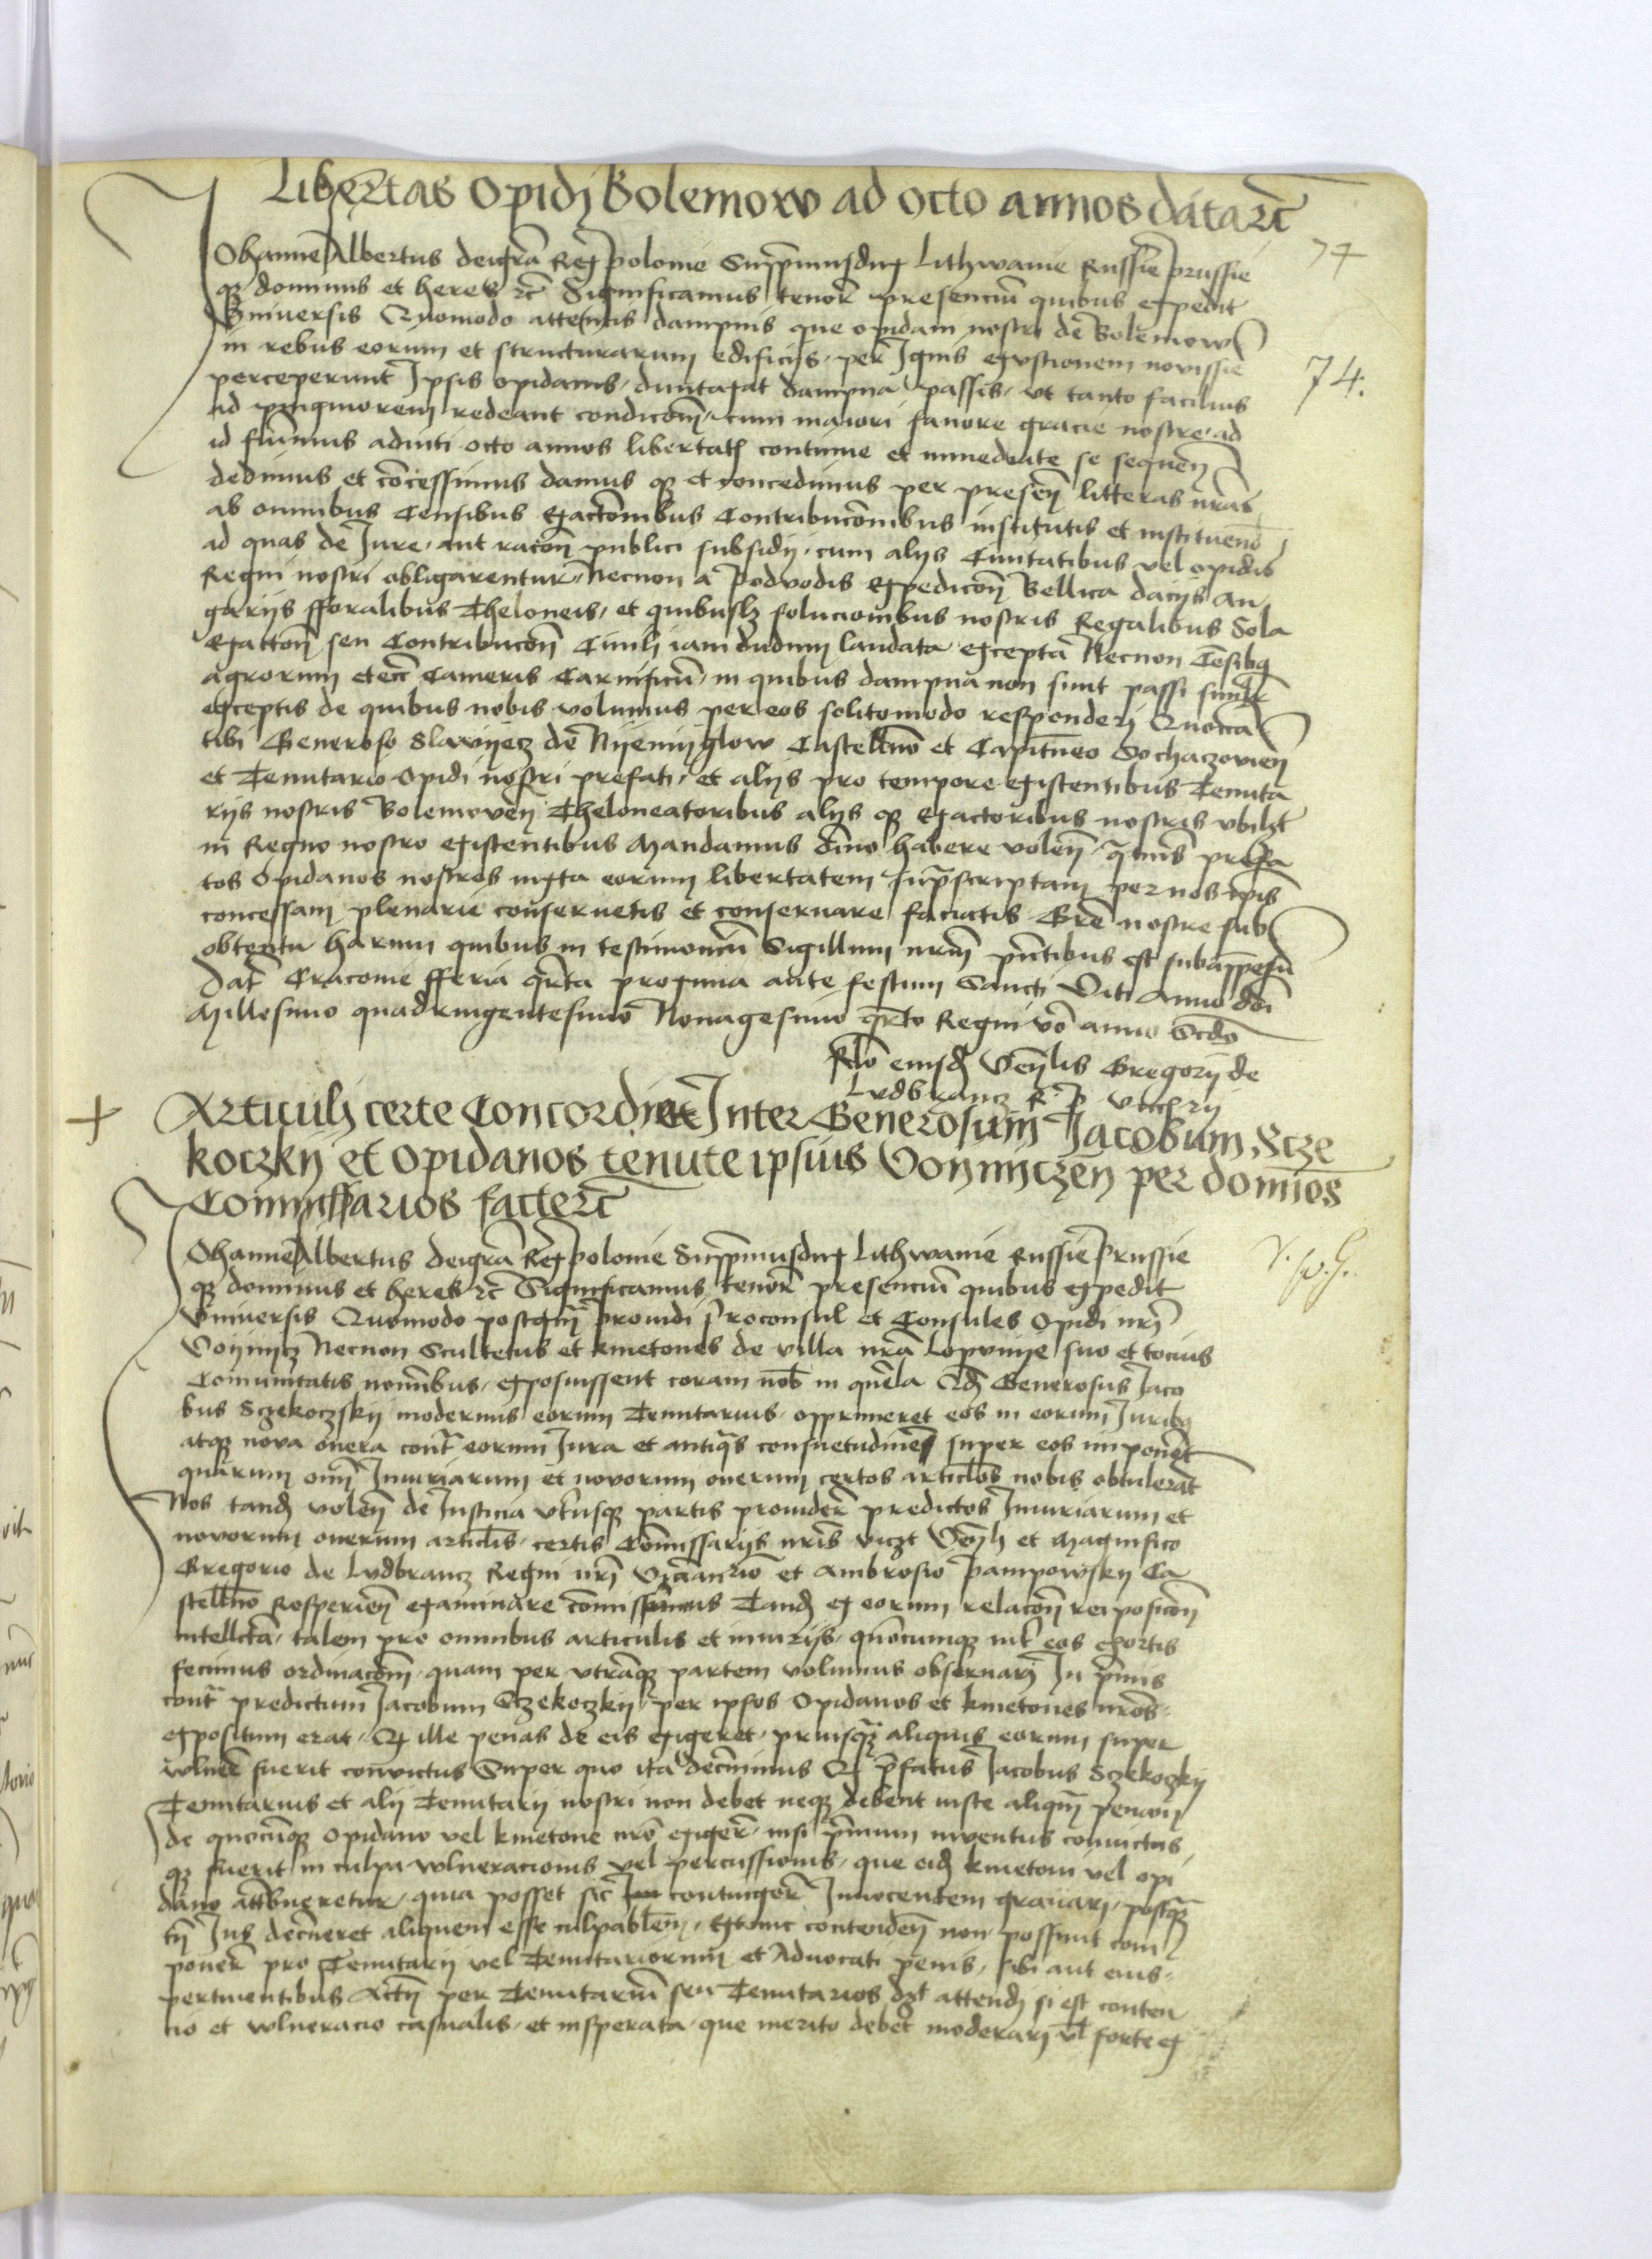 Libertas Opidi Bolemow ad octo annos data rc
77
Johannes Albertus dei grã Rex polonie Suppremusdux Lithwanie Russie prussie
qz dominus et heres rc Significamus tenor presenciũ quibus expedit
Universis Quomodo attentis dampnis que opidani nostri de Bolemow
in rebus eorum et structurarum edificijs per Ignis exustionem novissie
74.
perceperunt Ipsis opidanis duntaxat dampna passis ut tanto facilius
ad pinguiorem redeant condicõem cum maiori favore gracie nostre ad
id fuimus aducti octo annos libertatis continue et immediate se sequen
dedimus et cõcessimus damus qz et concedimus per presen litteras nras
ab omnibus Censibus Exactõnibus Contribucõnibus institutis et instituend
ad quas de Jure aut racõn publici subsidij cum alijs Civitatibus vel opidis
Regni nostri obligarentur Necnon a podvodis Expedicõn Bellica dacijs an
garijs fforalibus Theloneis et quibuslz solucionibus nostris Regalibus Sola
Exactõn seu Contribucõn Civili iam dudum laudata excepta Necnon Cẽsibq
agrorum et Cameris Carnificũ in quibus dampna non sunt passi similr
exceptis de quibus nobis volumus per eos solitomodo responderi Quocca
tibi Generoso Slavijecz de Nijemijglow Castellano et Capitaneo Sochaczovien
et Tenutario opidi nostri prefati et alijs pro tempore existentibus Tenuta
rijs nostris Bolemoven Theloneatoribus alijs qz Exactoribus nostris ubilzt
in Regno nostro existentibus Mandamus õino habere volen qtinus prefa
tos Opidanos nostros iuxta eorum libertatem supscriptam per nos ipis
concessam plenarie conservetis et conservare faciatis Gre nostre sub
obtentu harum quibus in testimoniũ Sigillum nrm pntibus est subappesũ
Dat Cracovie fferia qrta proxima ante festum Sancti Viti Anno dni
Millesimo quadringentesimo Nonagesimo qrto Regni vo anno Scdo
Rlo eiusd Venlis Gregorij de
Ludbrancz R. P. Vicecrij
+ Articuli certe Concordie Inter Generosum Jacobum Scze
koczkij et Opidanos tenute ipsius Voijnijczen per dominos
Commissarios facte rc
Johannes Albertus dei grã Rex polonie Suppmusdux Lithwanie Russie Prussie
qz dominus et heres rc Significamus tenor presenciũ quibus expedit
Universis Quomodo postqm providi Proconsul et Consules Opidi nri
Voijnijcz Necnon Scultetus et kmetones de villa nra Lopunije suo et tocius
Comunitatis nominbus exposuissent coram nob in querela Qd Generosus Jaco
bus Sczekoczskij modernus eorum Tenutarius opprimeret eos in eorum Juribq
atqz nova onera contr eorum Jura et antiqas consuetudines super eos imponeret
quarum omn Iniuriarum et novorum onerum certos articlos nobis obtulerat
Nos tand volen de Iusticia utriusqz partis provider predictos Iniuriarum et
novorum onerum articlis certis Commissarijs nris viczt Venli et Magnifico
Gregorio de Ludbrancz Regni nri Vicecancrio et Ambrosio Pampowskij Ca
stellano Rosperien examinare commisimus Tand ex eorum relacõn rei posicõn
intellecta talem pro omnibus articulis et iniurijs quocumqz int eos exortis
fecimus ordinacõem quam per utramqz partem volumus observari In pmis
contr predictum Jacobum Sczekoczkij per ipsos Opidanos et kmetones nros
expositum erat Q ille penas de eis exigeret priusqz aliquis eorum super
vulner fuerit convictus Super quo ita decrevimus Q pfatus Jacobus Sczekoczkij
Tenutarius et alij Tenutarij nostri non debet neqz debent iuste aliqm penam
de quocumqz opidano vel kmetone nro exiger nisi primum inventus convictus
qz fuerit in culpa vulneracionis vel percussionis que eid kmetoni vel opi
dano attribueretur quia posset sic contingere Innocentem gravari postqz
tn Jus decerneret aliquem esse culpablem Extunc contenden non possunt com
poner pro Tenutarij vel Tenutariorum et Advocati penis sibi aut eius
pertinentibus Actm per Tenutariũ seu Tenutarios dzt attendi si est conten
cio et vulneracio casualis et insperata que merito debet moderari vl forte ex